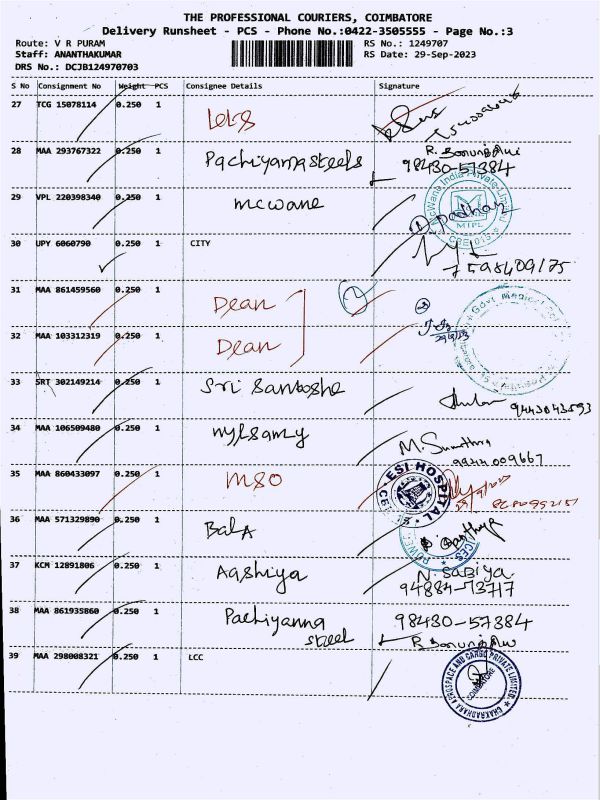 THE PROFESSIONAL COURIERS, COIMBATORE
Delivery Runsheet - PCS - Phone No.:0422-3505555 - Page No.:3
Route: V R PURAM RS No.: 1249707
Staff: ANANTHAKUMAR RS Date: 29-Sep-2023
DRS No.: DCJB124970703
S No Consignment No Weight PCS Consignee Details Signature
27 TCG 15078114 0.250 1
28 MAA 293767322 0.250 1 Pachiyamasteels
98430-57384
29 VPL 220398340 0.250 1 mcwane
McWane India Private Limited
MIPL
30 UPY 6060790 0.250 1 CITY
7598409175
31 MAA 861459560 0.250 1 Dean
Govt Medical
32 MAA 103312319 0.250 1 Dean
33 SRT 302149214 0.250 1 Sri Santoshe
9443043593
34 MAA 106509480 0.250 1 mylsamy
M. Sumithra
9944009667
35 MAA 860433097 0.250 1 MSO
ESI HOSPITAL
36 MAA 571329890 0.250 1 BalA
37 KCM 12891806 0.250 1 Aashiya N. Sabiya
94884-73717
38 MAA 861935860 0.250 1 Pachiyanna 98430-57384
steel
39 MAA 298008321 0.250 1 LCC
CHAKRADHARA AEROSPACE AND CARGO PRIVATE LIMITED
COIMBATORE